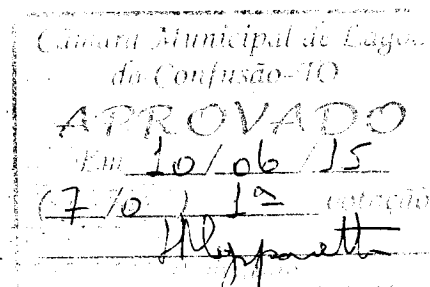 Câmara Municipal de Lagoa
da Confusão-TO
APROVADO
Em 10/06/15
(7/0) 1ª votação